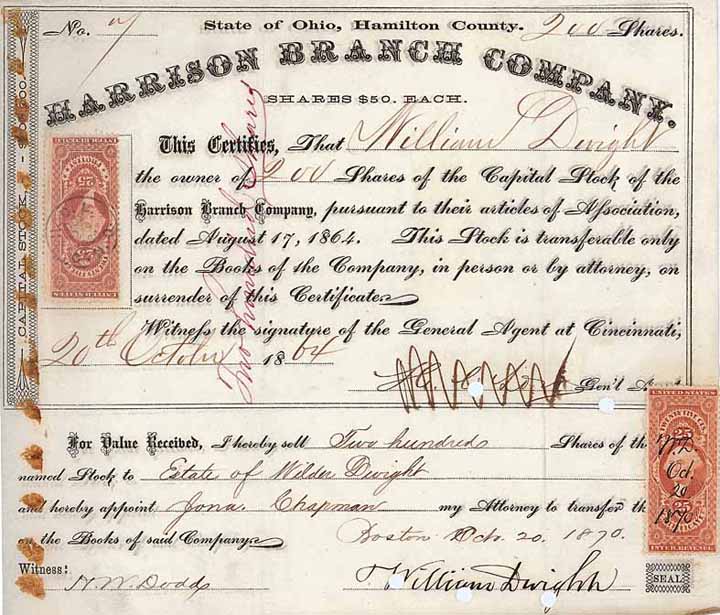 No. 7
State of Ohio, Hamilton County.
200 Shares.
HARRISON BRANCH COMPANY.
SHARES $50. EACH.
CAPITAL STOCK
This Certifies, That William Dwight
the owner of 200 Shares of the Capital Stock of the
Harrison Branch Company, pursuant to their articles of Association,
dated August 17, 1864. This Stock is transferable only
on the Books of the Company, in person or by attorney, on
surrender of this Certificate.
Two Hundred Shares
Witness the signature of the General Agent at Cincinnati,
20th October 1864
Gen'l
For Value Received, I hereby sell Two hundred Shares of the
named Stock to Estate of Wilder Dwight
and hereby appoint Jona. Chapman my Attorney to transfer th
on the Books of said Company.
Boston Oct. 20. 1870.
Witness:
H. W. Dodd
William Dwight
SEAL
UNITED STATES
25
W.D.
Oct.
20
1870
25
INTER. REVENUE